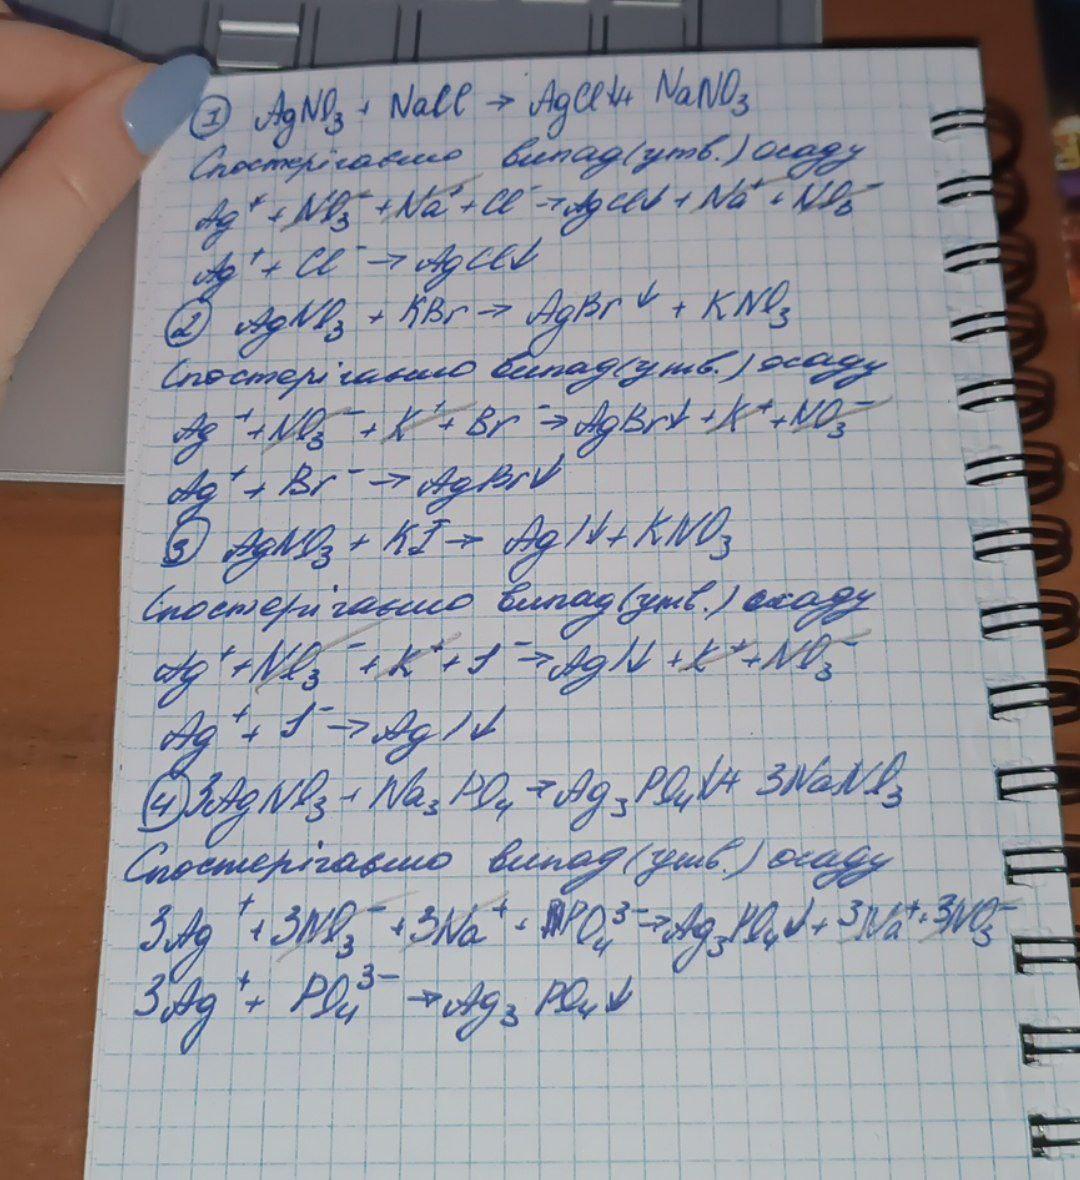 ① AgNO₃ + NaCl → AgCl↓ + NaNO₃
Спостерігаємо випад(утв.) осаду
Ag⁺ + NO₃⁻ + Na⁺ + Cl⁻ → AgCl↓ + Na⁺ + NO₃⁻
Ag⁺ + Cl⁻ → AgCl↓
② AgNO₃ + KBr → AgBr↓ + KNO₃
Спостерігаємо випад(утв.) осаду
Ag⁺ + NO₃⁻ + K⁺ + Br⁻ → AgBr↓ + K⁺ + NO₃⁻
Ag⁺ + Br⁻ → AgBr↓
③ AgNO₃ + KI → AgI↓ + KNO₃
Спостерігаємо випад(утв.) осаду
Ag⁺ + NO₃⁻ + K⁺ + I⁻ → AgI↓ + K⁺ + NO₃⁻
Ag⁺ + I⁻ → AgI↓
④ 3AgNO₃ + Na₃PO₄ → Ag₃PO₄↓ + 3NaNO₃
Спостерігаємо випад(утв.) осаду
3Ag⁺ + 3NO₃⁻ + 3Na⁺ + PO₄³⁻ → Ag₃PO₄↓ + 3Na⁺ + 3NO₃⁻
3Ag⁺ + PO₄³⁻ → Ag₃PO₄↓